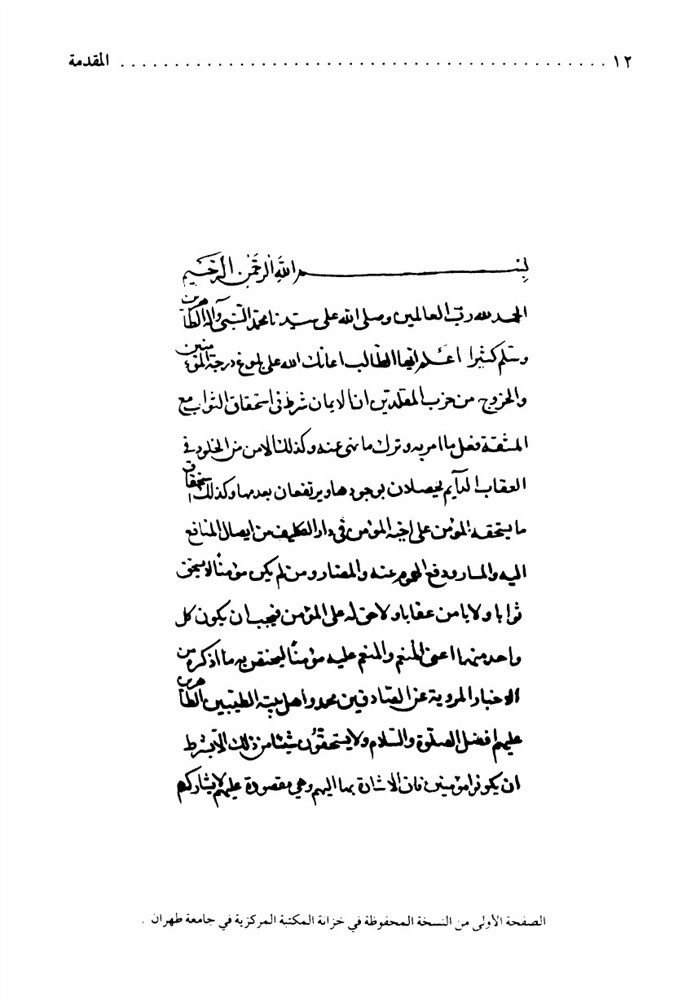 ١٢ . . . . . . . . . . . . . . . . . . . . . . . . . . . . . . . . . . . . . . . . . . . . المقدمة
بسم الله الرحمن الرحيم
الحمد لله رب العالمين وصلى الله على سيدنا محمد النبي وآله الطاهرين
وسلم كثيرا اعلم ايها الطالب اعانك الله على بلوغ درجة المؤمنين
والخروج من حزب المقلدين ان الايمان شرط في استحقاق الثواب مع
المشقة بفعل ما امر به وترك ما نهى عنه وكذلك الامن من الخلود في
العقاب الدآيم يحصلان بوجودها ويرتفعان بعدمها وكذلك استحقاق
ما يستحقه المؤمن على اخيه المؤمن في دار التكليف من ايصال المنافع
اليه والمسار ودفع الهموم عنه والمضار ومن لم يكن مؤمنا لا يستحق
ثوابا ولا يامن عقابا ولا حق له على المؤمن فيجب ان يكون كل
واحد منهما اعنى المنعم والمنعم عليه مؤمنا ليحقق به ما اذكره من
الاخبار المروية عن الصادقين محمد واهل بيته الطيبين الطاهرين
عليهم افضل الصلوة والسلام ولا يستحقون شيئا من ذلك الا بشرط
ان يكونوا مؤمنين فان الاشارة بها اليهم وهي مقصودة عليهم لا يشاركهم
الصفحة الأولى من النسخة المحفوظة في خزانة المكتبة المركزية في جامعة طهران .